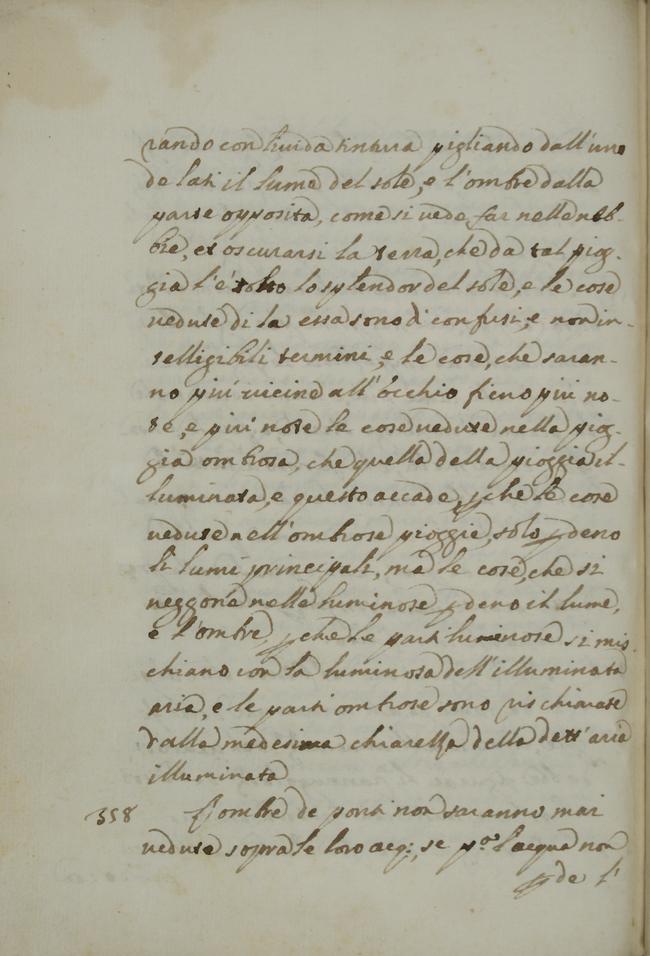 rando con livida tintura pigliando dall'uno
de lati il lume del sole, e l'ombre dalla
parte opposita, come si vede far nelle neb-
bie, et oscurarsi la terra, che da tal piog-
gia l'é tolto lo splendor del sole, e le cose
vedute di la essa sono di confusi, e non in-
telligibili termini, e le cose, che saran-
no più vicine all'occhio fieno più no-
te, e più note le cose vedute nella piog-
gia ombrosa, che quella della pioggia il-
luminata, e questo accade, pche le cose
vedute nell'ombrose pioggie, solo pdeno
li lumi principali, mà le cose, che si
veggono nelle luminose pdeno il lume,
e l'ombre, pche le parti luminose si mis-
chiano con la luminosa dell'illuminata
aria, e le parti ombrose sono rischiarate
dalla medesima chiarezza della dett'aria
illuminata
358 L'ombre de ponti non saranno mai
vedute sopra le loro acq:, se p.a l'acqua non
pde l'